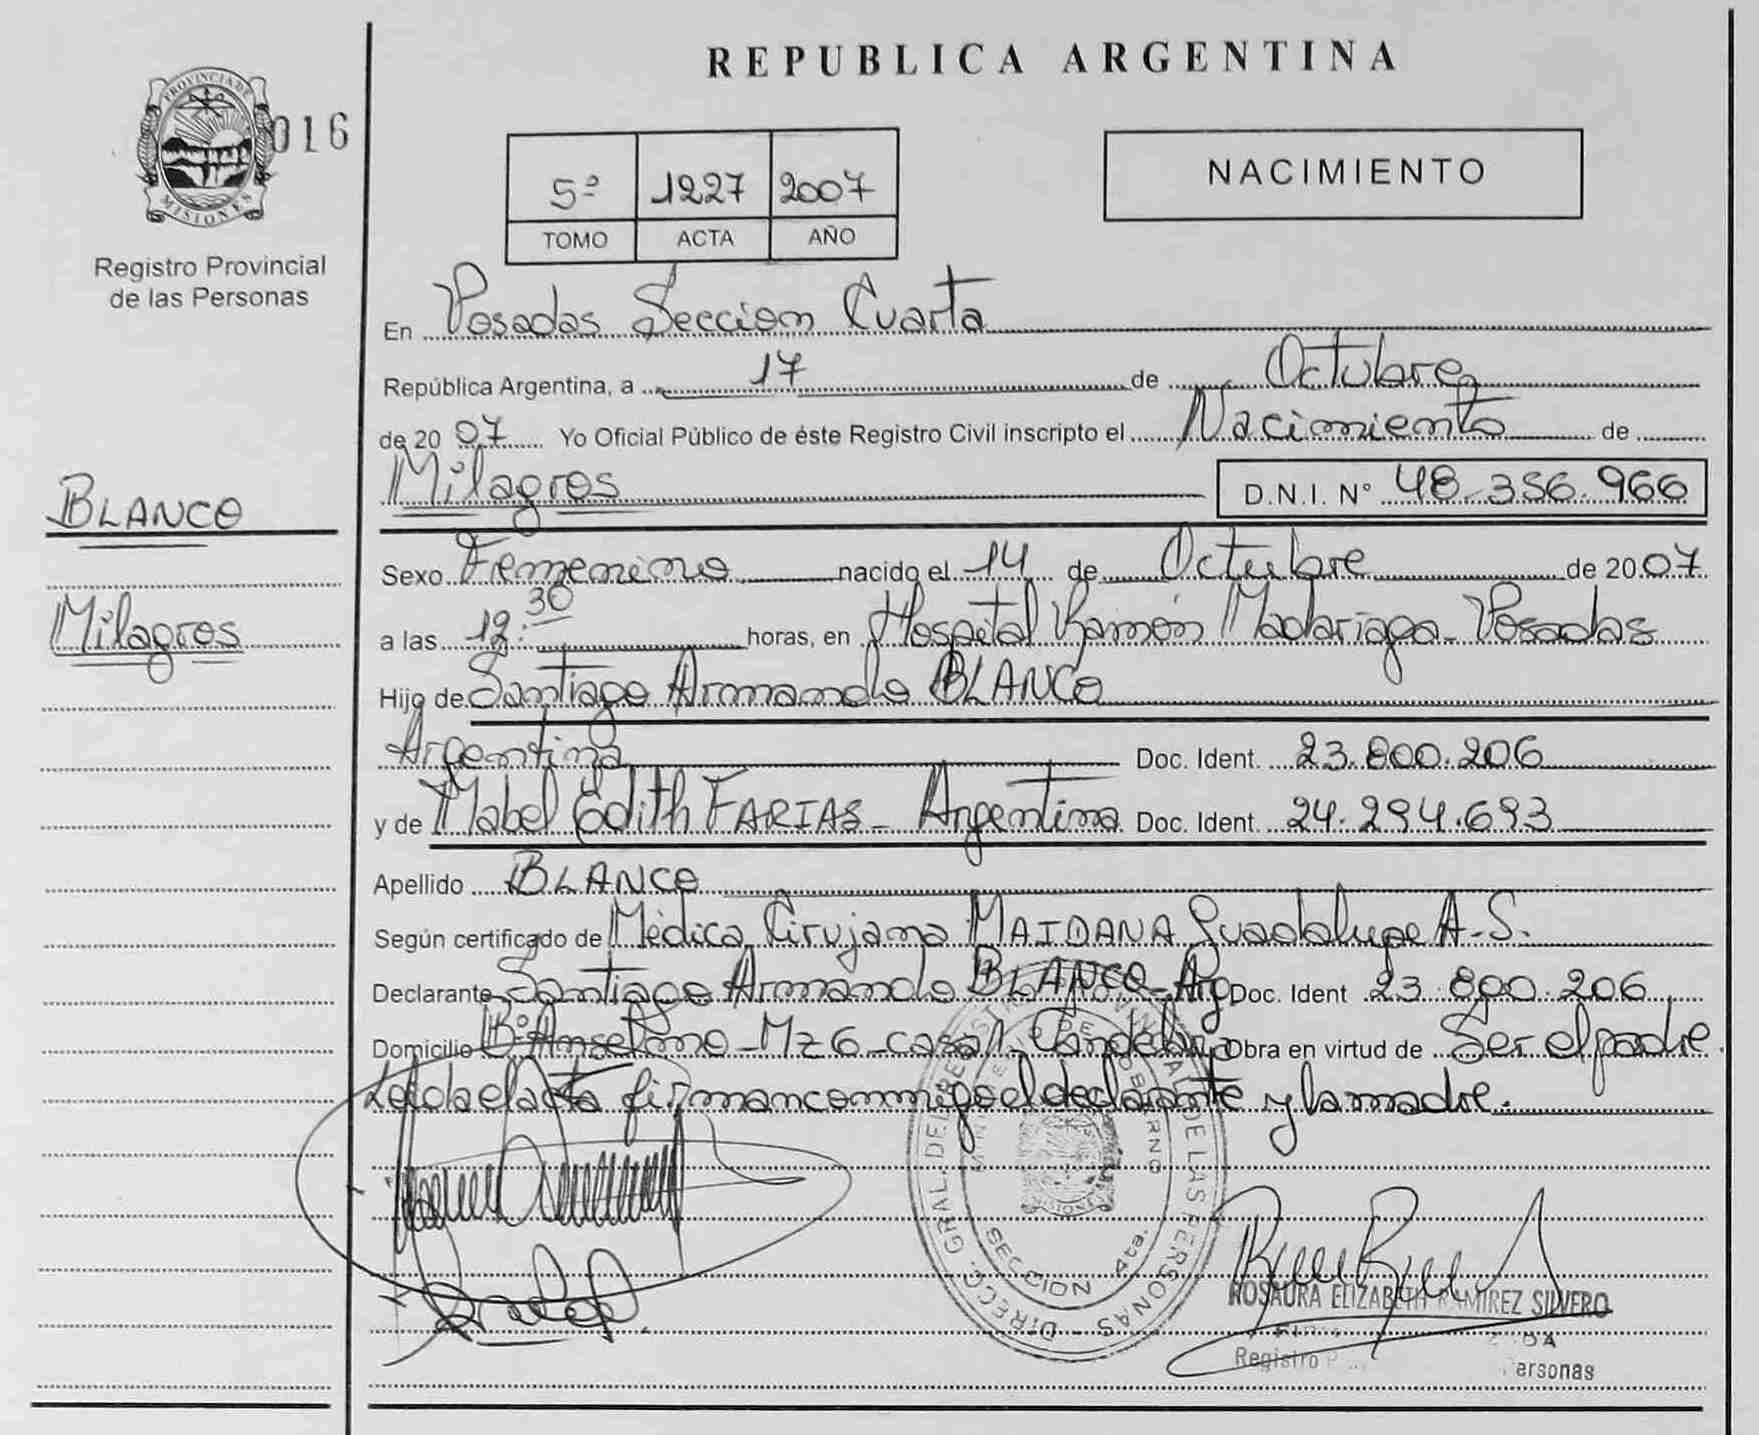 REPUBLICA ARGENTINA
PROVINCIA DE MISIONES
016
Registro Provincial
de las Personas
5º 1227 2007
TOMO ACTA AÑO
NACIMIENTO
En Posadas Seccion Cuarta
República Argentina, a 17 de Octubre
de 2007 Yo Oficial Público de éste Registro Civil inscripto el Nacimiento de
Milagros
D.N.I. Nº 48.356.966
BLANCO
Milagros
Sexo Femenino nacido el 14 de Octubre de 2007
a las 12:30 horas, en Hospital Ramón Madariaga - Posadas
Hijo de Santiago Armando BLANCO
Argentina Doc. Ident. 23.800.206
y de Mabel Edith FARIAS - Argentina Doc. Ident. 24.294.693
Apellido BLANCO
Según certificado de Médica Cirujana MAIDANA Guadalupe A.S.
Declarante Santiago Armando BLANCO - Arg Doc. Ident 23.800.206
Domicilio Bº Anselmo - Mz 6 - casa 1 - Candelaria Obra en virtud de Ser el padre.
Leida el acta firman conmigo el declarante y la madre.
DIRECC. GRAL. DEL REGISTRO PROVINCIAL DE LAS PERSONAS
SECCION 4ta.
ROSAURA ELIZABETH RAMIREZ SILVERO
Registro
ersonas